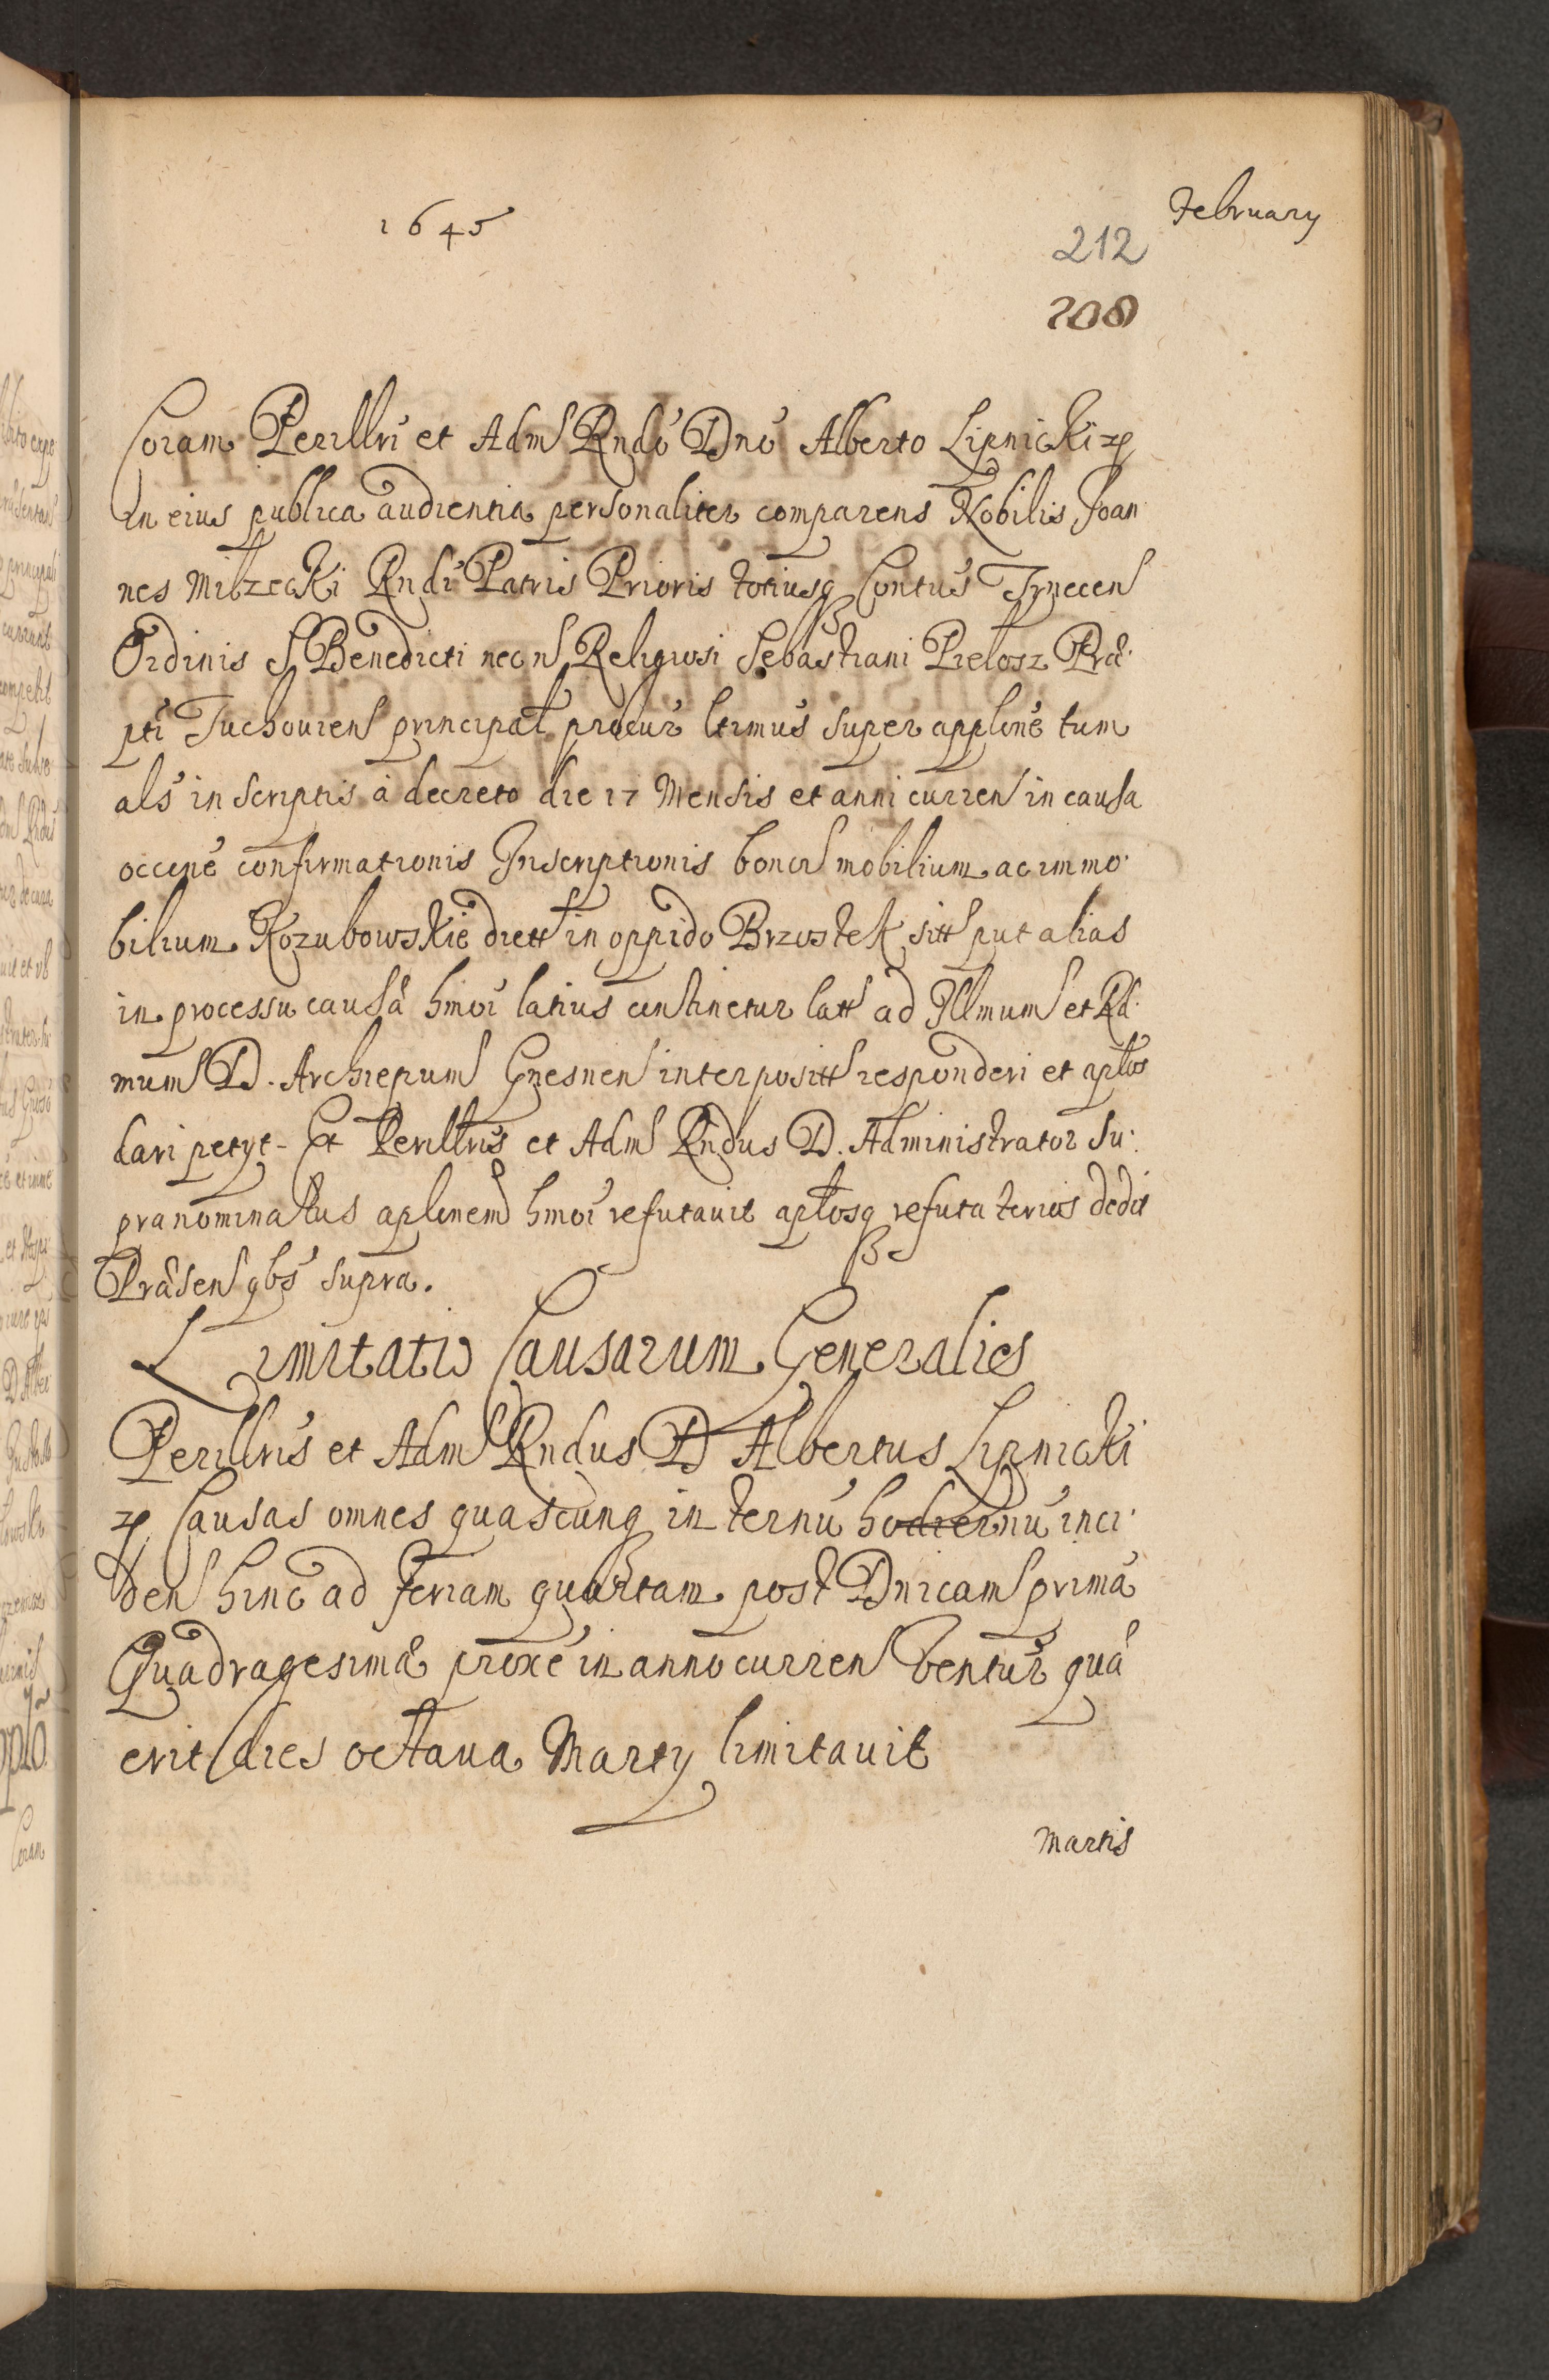 1645
February
212
208
Coram Perillri et Adm Rndo Dno Alberto Lipnicki
in eius publica audientia personaliter comparens Nobilis Joan
nes Milzecki Rndi Patris Prioris totiusq Contus Tynecen
Ordinis S Benedicti necn Religiosi Sebastiani Pielosz Præ
pti Tuchovien principal procur ltimus super applone tum
als in scriptis à decreto die 17 Mensis et anni curren in causa
occone confirmationis Inscriptionis bonor mobilium ac immo
bilium Kozubowskie dictt in oppido Brzostek sitt put alias
in processu causæ hmoi latius continetur latt ad Illmum et Rd
mum D. Archiepum Gnesnen interpositt responderi et aplos
dari petyt - Et Perillris et Adm Rndus D. Administrator Su
pra nominatus aplonem hmoi refutavit aplosq refutatorios dedit
Præsen qbs supra.
Limitatio Causarum Generalies
Perillris et Adm Rndus D Albertus Lipnicki
Causas omnes quascunq in ternu hodiernu inci
den hinc ad feriam quartam post Dnicam prima
Quadragesimæ proxe in anno curren ventur quæ
erit dies octava Marty limitavit
Martis